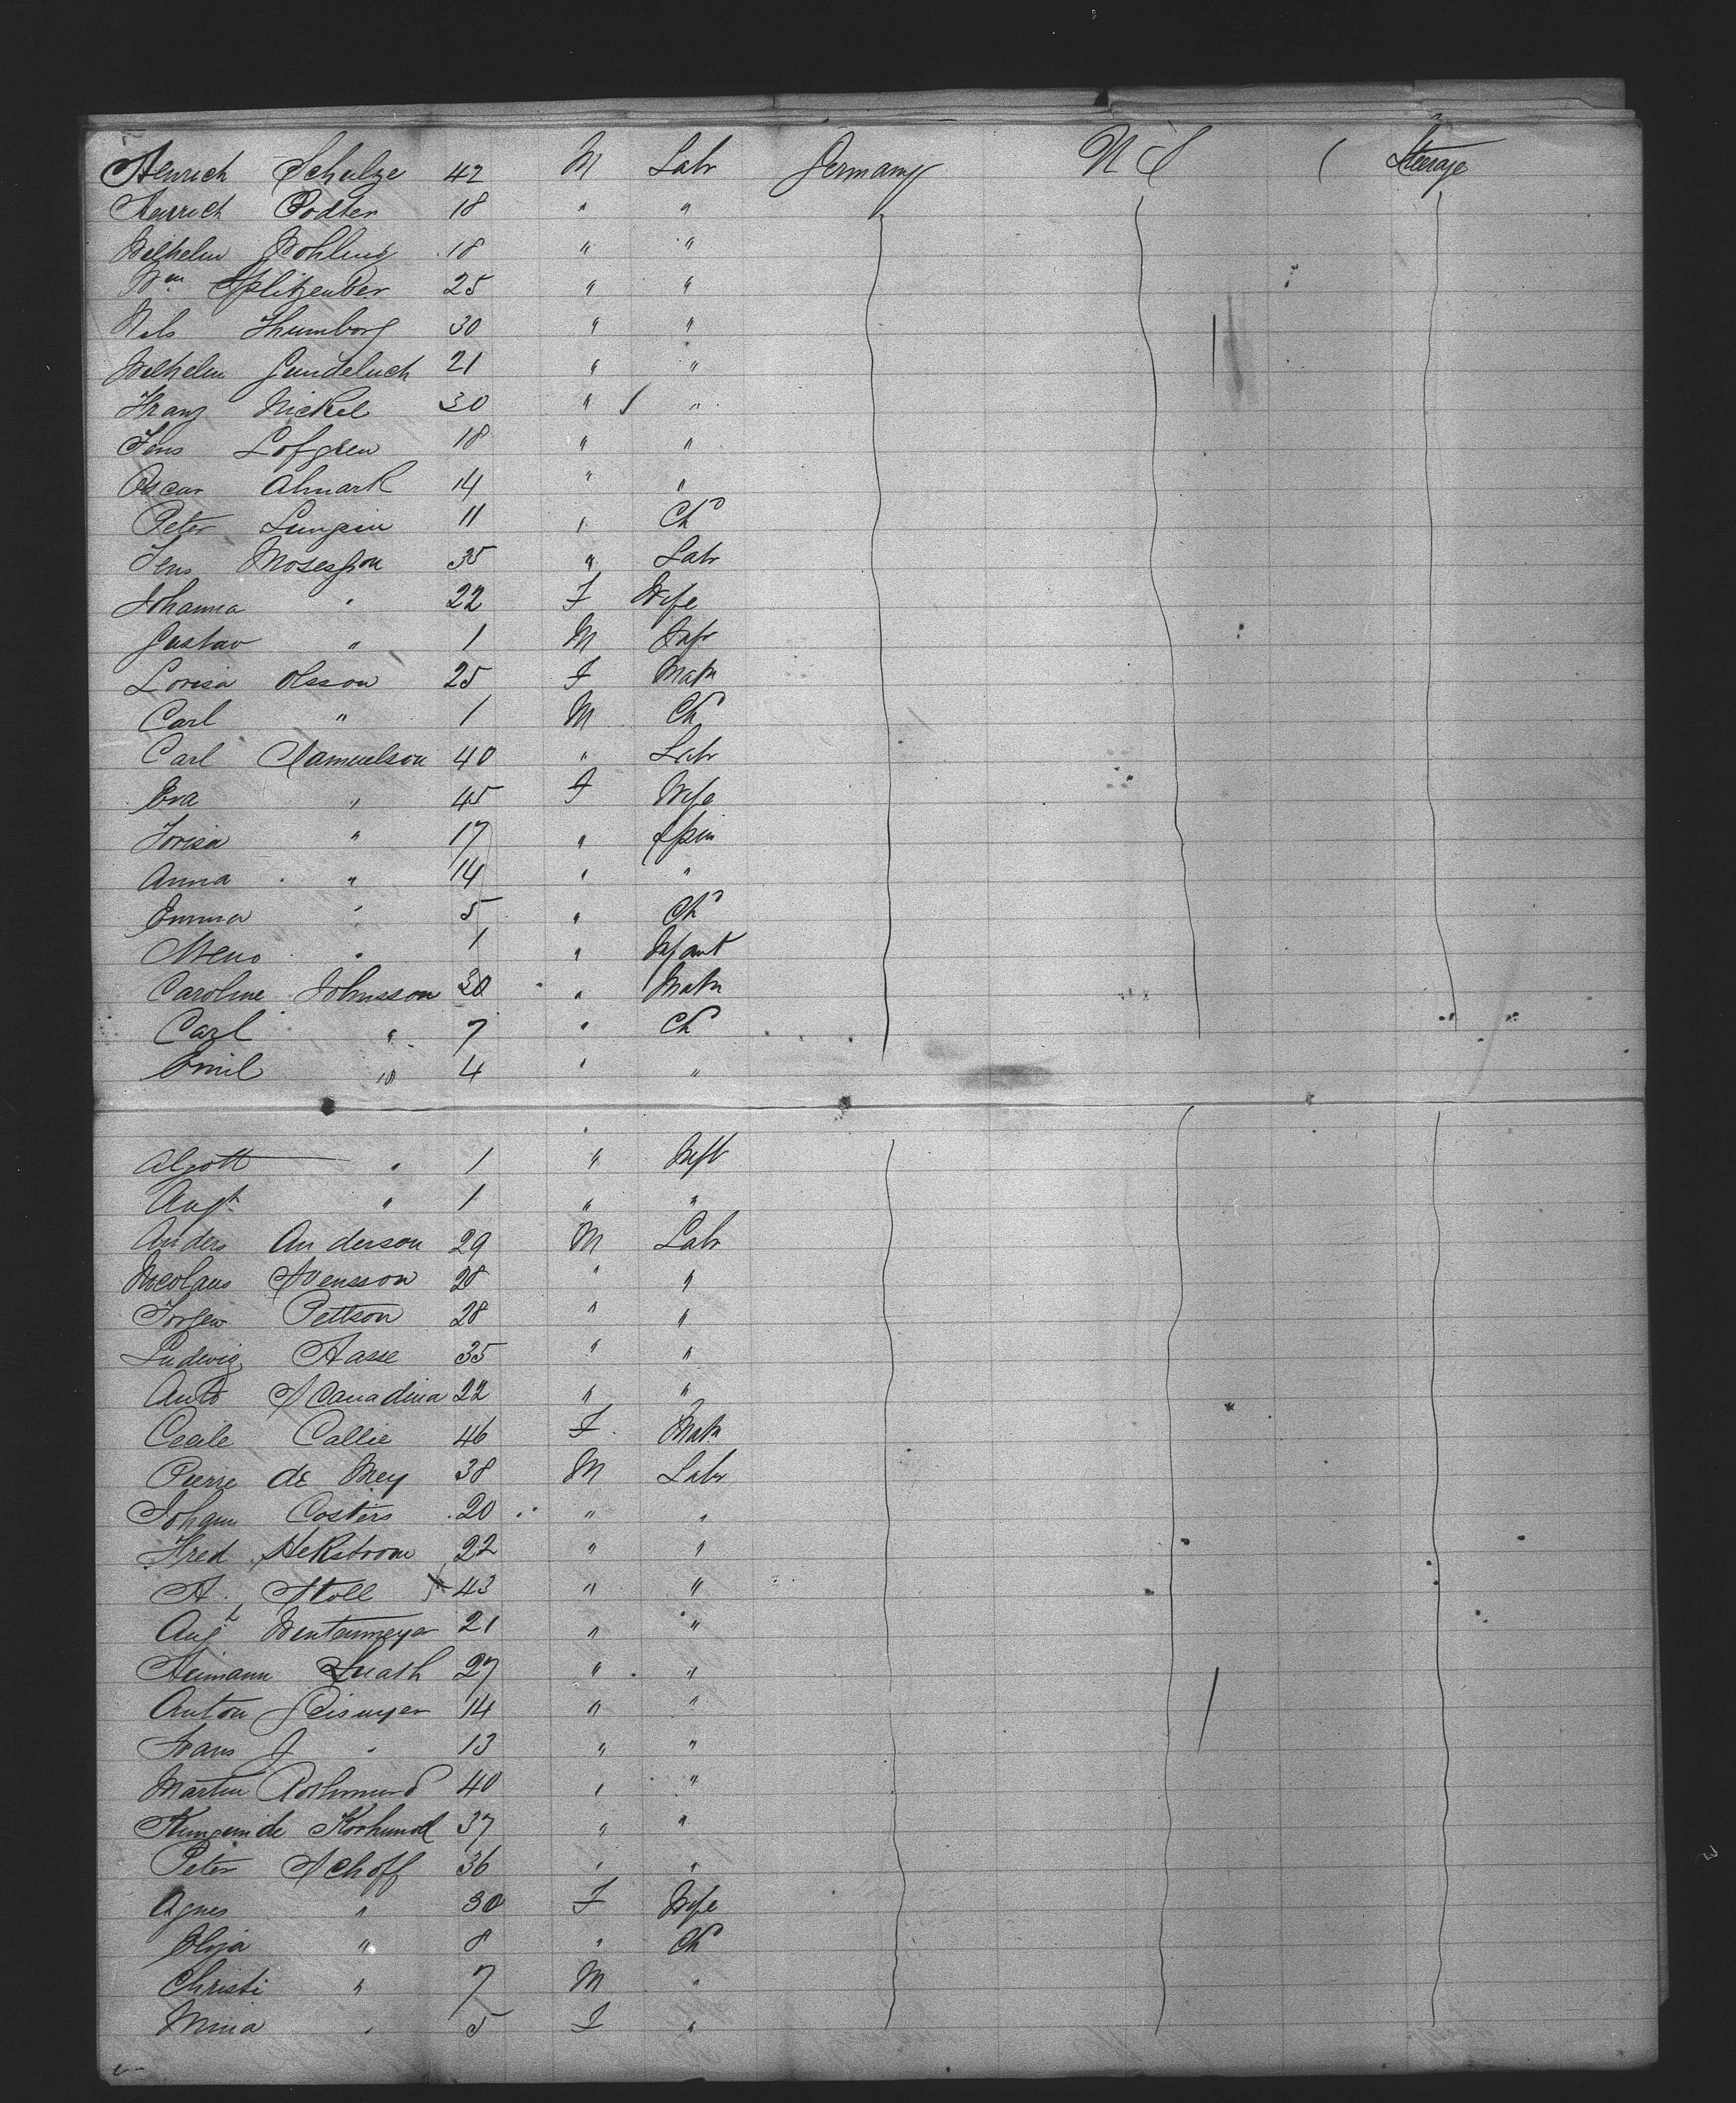 Henrich Schulze 42 M Labr Germany U S ( Steerage
Heinrich Podter 18 " "
Wilhelm Wohling 18 " "
Wm Splitzenber 25 " "
Nils Thumborg 30 " "
Wilhelm Gundeluch 21 " "
Franz Nickel 30 " "
Jens Lofgren 18 " "
Oscar Almark 14 " "
Peter 11 " Chd
Jens Mosesson 35 " Labr
Johanna " 22 F Wife
Gustav " 1 M Inft
Lovisa Olsson 25 F Matn
Carl " 1 M Chd
Carl Samuelson 40 " Labr
Eva " 45 F Wife
Lovisa " 17 " Spin
Anna " 14 " "
Emma " 5 " Chd
" 1 " Infant
Caroline Johnsson 30 " Matn
Carl " 7 " Chd
Emil " 4 " "
Algott " 1 " Inft
Augt " 1 " "
Anders Anderson 29 M Labr
Nicolaus Svensson 28 " "
Jorgen Pettson 28 " "
Ludwig Hasse 35 " "
Anto Scanadina 22 " "
Cecile Callie 46 F Matn
Pierre de Mey 38 M Labr
Johann Costers 20 " "
Fred Hekstrom 22 " "
A. Stoll 43 " "
Augt Wentenmeyer 21 " "
Heimann 27 " "
Anton 14 " "
Frans J " 13 " "
Martin Rothmund 40 " "
Korhunod 37 " "
Peter Schoff 36 " "
Agnes " 30 F Wife
Elija " 8 " Chd
Christi " 7 M "
Mina " 5 F "